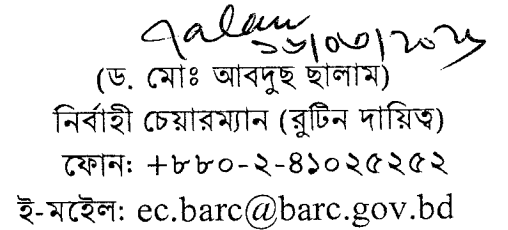 (ড. মোঃ আবদুছ ছালাম)
নির্বাহী চেয়ারম্যান (রুটিন দায়িত্ব)
ফোন: +৮৮০-২-৪১০২৫২৫২
ই-মইেল: ec.barc@barc.gov.bd